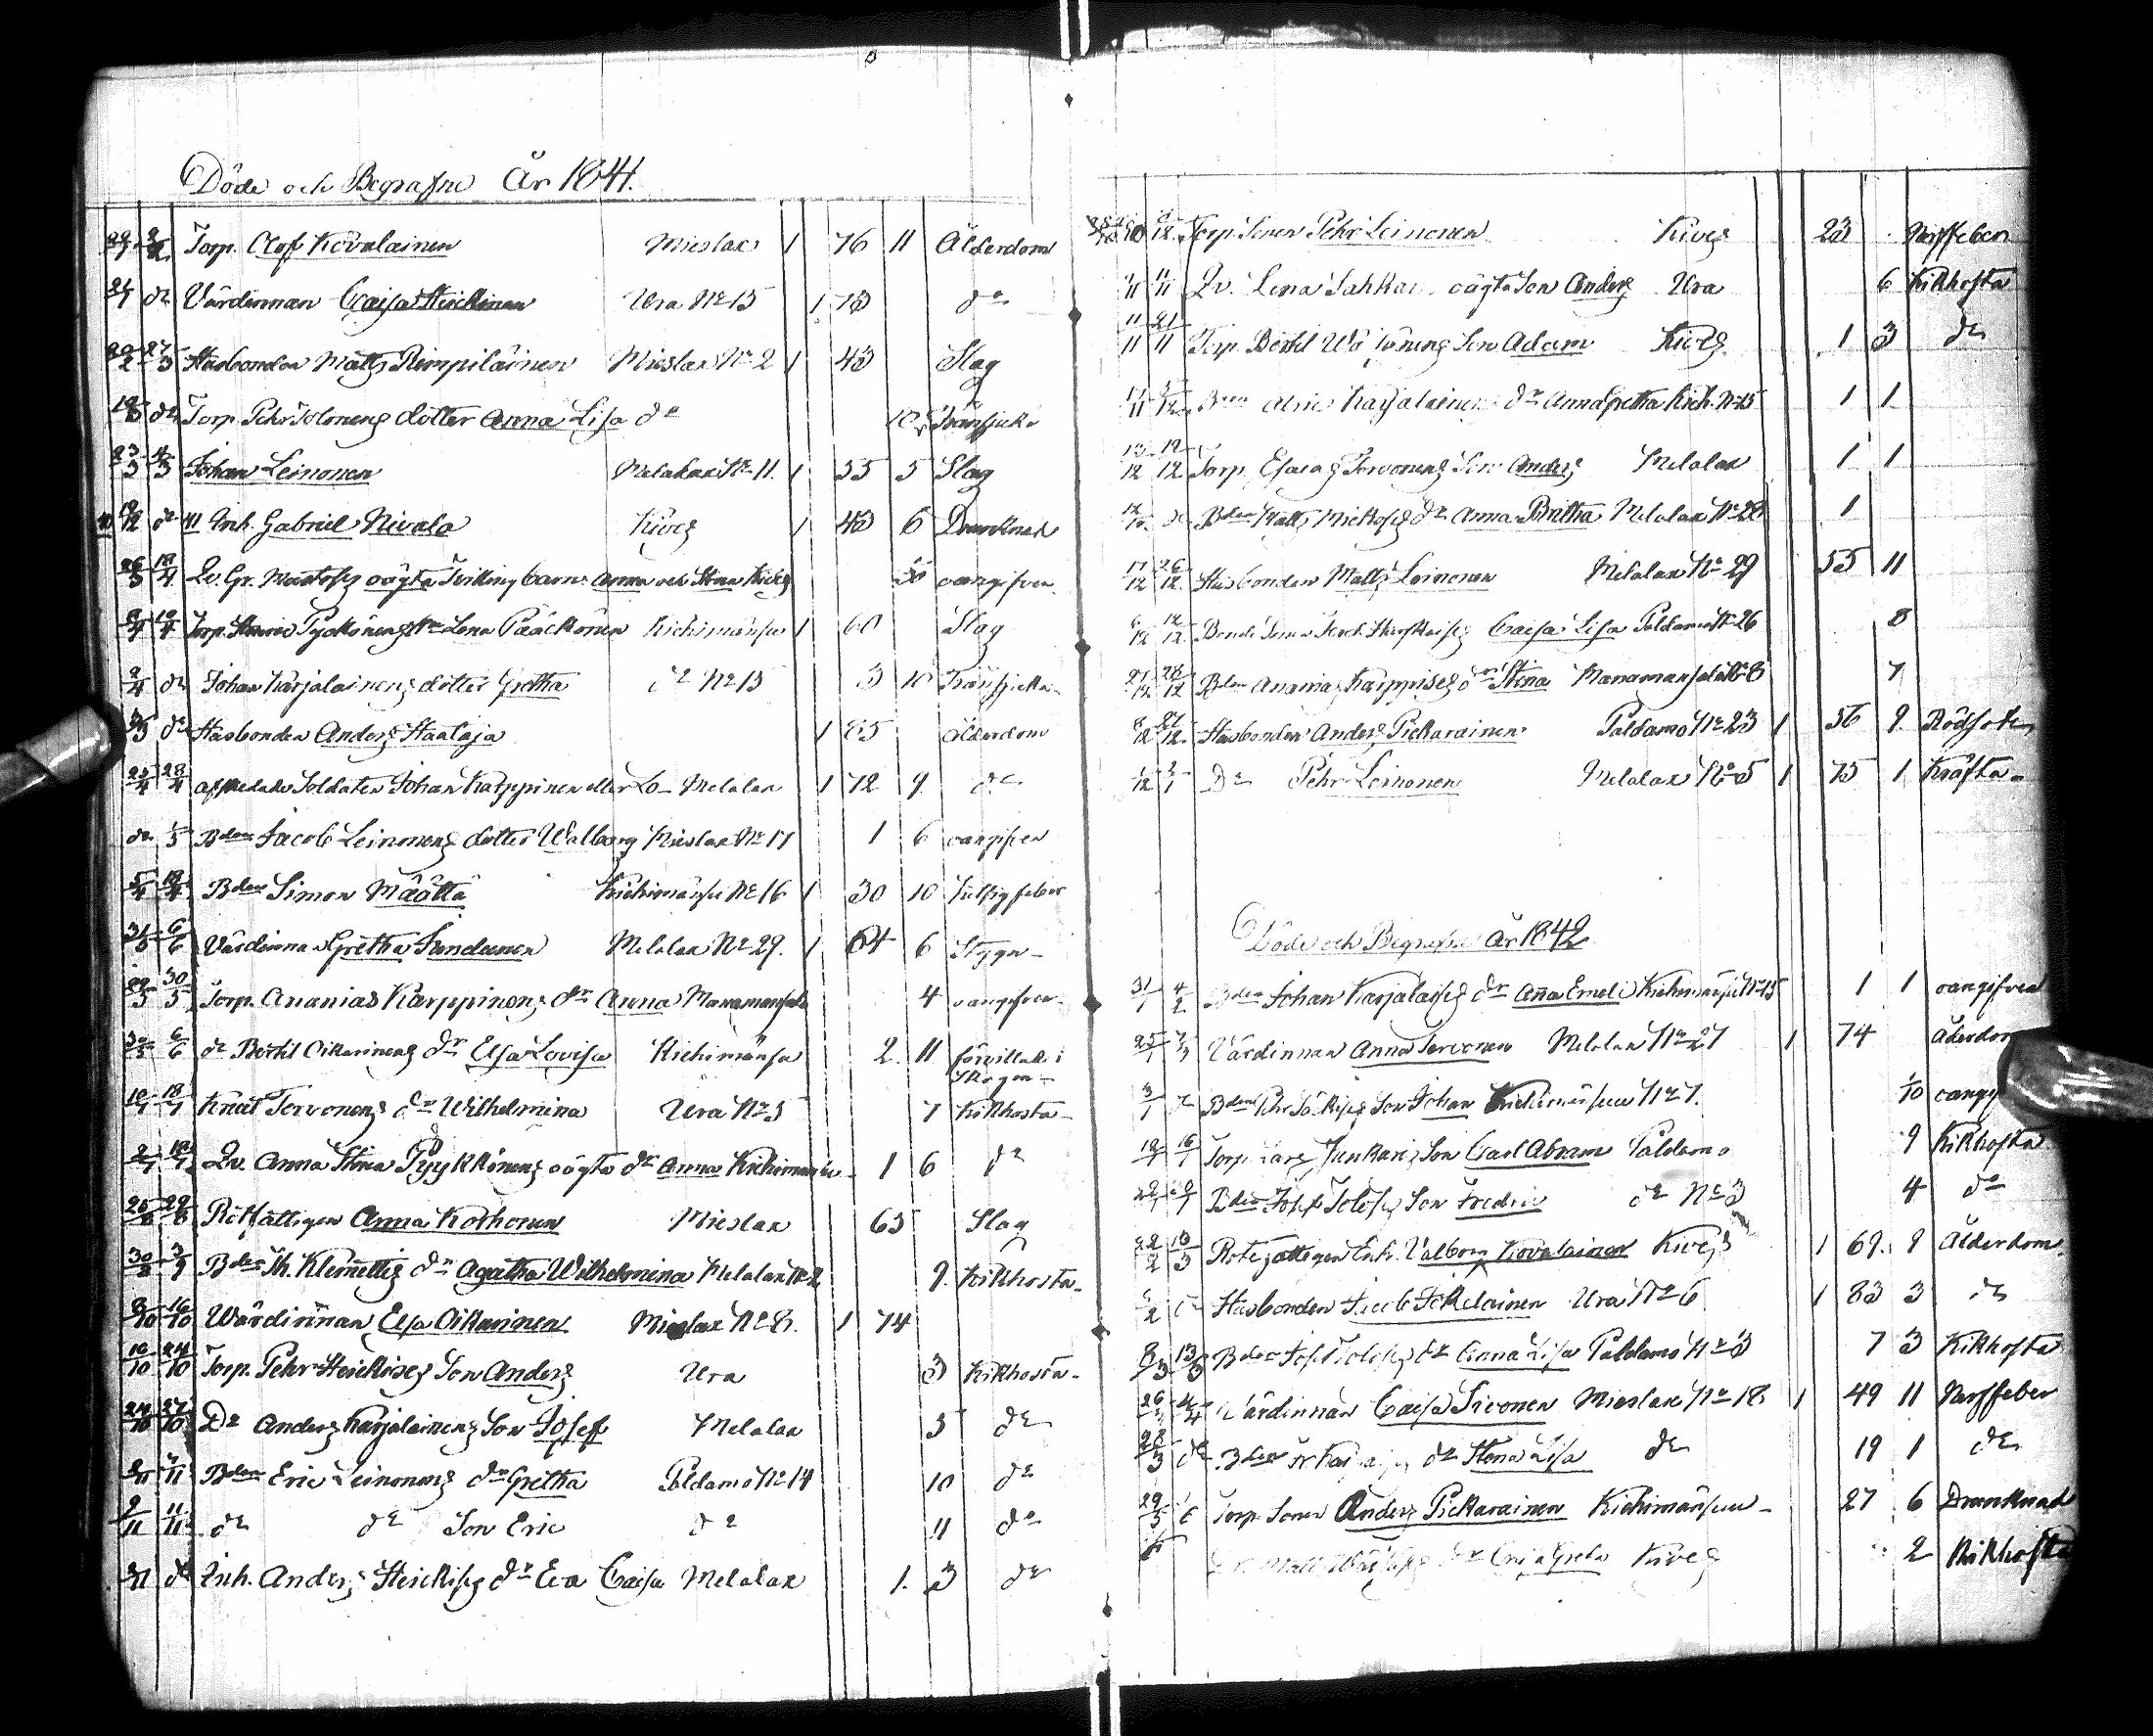 Döde och Begrafne År 1841.
29/1 2/2 Torp. Olof Kovalainen Mieslax 1 76 11 Ålderdom
24/1 do Värdinnan Caisa Heickinen Ura No 15 1 73 do
20/2 27/3 Husbonden Matts Rimpiläinen Mieslax No 2 1 43 Slag
19/3 do Torp. Pehr Tolonens dotter Anna Lisa do 10 Trånsjuka
23/3 4/3 Johan Leinonen Melalax No 11. 1 55 5 Slag
40 19/12 do 41 Inh. Gabriel Nivala Kives 1 43 6 Drunknad
26/3 18/4 Qv. Gr. Mustos oägta Tvilling barn Anna och Stina Kives oangifven
8/4 19/4 Torp. Henric Pyckönens Lena Pääckönen Kiehimänsu 1 60 Slag
2/4 do Johan Karjalainens dotter Gretha do No 15 3 10 Trånsjuka
do Husbonden Anders Haataja 1 85 Ålderdom
25/4 28/4 afskedade Soldaten Johan Karppinen eller Lo Melalax 1 72 9 do
do 1/5 Bden Jacob Leinonens dotter Walborg Mieslax No 17 1 6 oangifven
5/4 18/4 Bden Simon Määttä Kiehimänsu No 16 1 30 10 feber
31/5 6/6 Värdinnan Gretha Sundeenen Melalax No 29. 1 64 6 Stygn
29/5 30/5 Torp. Ananias Karppinens dr Anna Manamansalo 4 oangifven
30/5 6/6 do Bertil Oikarinens dr Elsa Lovisa Kiehimänsu 2. 11 förvillad i
skogen
10/7 18/7 Knut Tervonens dr Wilhelmina Ura No 5 7 Kikhosta
2/7 18/7 Qv. Anna Stina Pyykkönens oägta dr Anna Kiehimänsu 1 6 do
25/8 29/8 Rotfattigen Anna Korhonen Mieslax 63 Slag
30/8 3/9 Bden Th. Klemettis dr Agatha Wilhelmina Melalax No 2 9. Kikhosta
8/10 16/10 Wärdinnan Elsa Oikarinen Mieslax No 8. 1 74
10/10 24/10 Torp. Pehr Heickises Son Anders Ura 3 Kikhosta
24/10 27/10 Do Anders Karjalainens Son Josef Melalax 3 do
2/11 7/11 Bden Eric Leinonens dr Gretha Paldamo No 14 10 do
9/11 11/11 do do Son Eric do 11 do
2/11 do Inh. Anders Heickises dr Eva Caisa Melalax 1. 3 do
Torp. Sonen Pehr Leinonen Kives 23 Nerffeber
11/11 Qv. Lena Sahkar oägta Son Anders Ura 6 Kikhosta
11/11 21/11 Torp. Bertil Son Adam Kives 1 3 do
Bden Karjalainens dr Anna Gretha Kieh. No 15 1 1
12/12 19/12 Torp. Esaias Tervonens Son Anders Melalax 1 1
Bden Matts Mickoses dr Anna Britha Melalax No 28 1
17/12 26/12 Husbonden Matts Leinonen Melalax No 29 55 11
6/12 12/12 Caisa Lisa Paldamo No 26 8
21/12 28/12 Bden Ananias Karppises dr Stina Manamansalo No 8 7
8/12 27/12 Husbonden Anders Pickarainen Paldamo No 23 1 56 9. Rödsot
1/12 2/1 Do Pehr Leinonen Melalax No 5 1 75 1 Kräfta
Döde och Begrafne År 1842
31/1 4/2 Bden Johan Karjalaises dr Anna Emeli Kiehimänsu No 15 1 1 oangifven
25/1 Värdinnan Anna Tervonen Melalax No 27 1 74 Ålderdom
3/1 do Bden Son Johan Kiehimänsuu No 7. oangif
12/1 16/1 Torp. Lars Junkaris Son Carl Abram Paldamo 9 Kikhosta
Bden Josef Tolo Son Fredric do No 3 4 do
22/2 13/3 Rotefattigen Enk. Valborg Kovalainen Kives 1 69. 9 Ålderdom
5/2 do Husbonden Jacob Jokelainen Ura No 6 1 83 3 do
8/3 13/3 Bden Josef dr Anna Lisa Paldamo No 3 7 3 Kikhosta
26/3 4/4 Värdinnan Caisa Sivonen Mieslax No 18 1 49 11 Nerffeber
28/3 do Bden dr Stina Lisa do 19 1 do
29/5 Torp. Sonen Anders Pickarainen Kiehimänsuu 27 6 Drunknad
Matts dr Caisa Greta Kives 2 Kikhosta